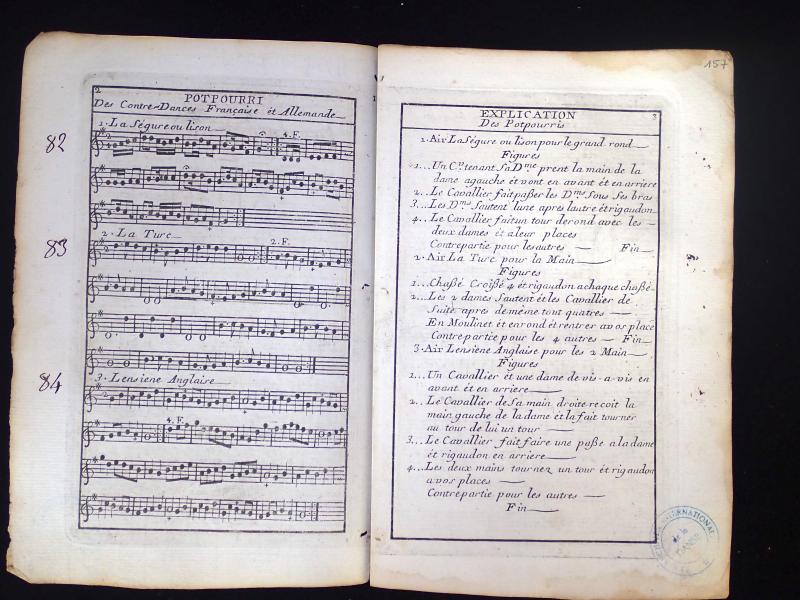 2
POTPOURRI
Des Contre-Dances Française ét Allemande
82
1. La Ségure ou lison
4. F.
83
2. La Turc
2. F.
84
3. Lensiene Anglaise
4. F.
157
3
EXPLICATION
Des Potpourris
1. Air La Ségure ou lison pour le grand rond
Figures
1... Un C.er tenant Sa D.me prent la main de la
dame agauche ét vont en avant ét en arriere
2.. Le Cavallier fait paßer les D.mes Sous Ses bras
3... Les D.mes Sautent lune apres lautre ét rigaudon
4.. Le Cavallier fait un tour de rond avec les
deux dames ét a leur places
Contrepartie pour les autres — Fin
2. Air La Turc pour la Main
Figures
1... Chaßé Croißé 4 ét rigaudon a chaque chaßé
2... Les 2 dames Sautent ét les Cavallier de
Suite apres de même tout quatres
En Moulinet ét en rond ét rentrer a vos place
Contrepartie pour les 4 autres — Fin
3. Air Lensiene Anglaise pour les 2 Main
Figures
1... Un Cavallier ét une dame de vis-a-vis en
avant ét en arriere
2... Le Cavallier de Sa main droite recoit la
main gauche de la dame ét la fait tourner
au tour de lui un tour
3... Le Cavallier fait faire une paße a la dame
ét rigaudon en arriere
4... Les deux mains tournez un tour ét rigaudon
a vos places
Contrepartie pour les autres
Fin
INTERNATIONAL
de la
DANSE